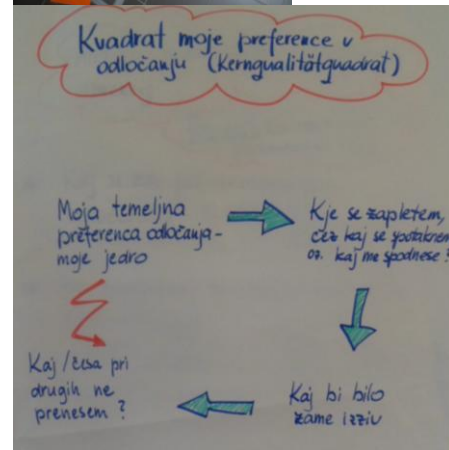 Kvadrat moje preference v
odločanju (Kernqualitätquadrat)
Moja temeljna
preferenca odločanja -
moje jedro
Kje se zapletem,
čez kaj se spotaknem
oz. kaj me spodnese?
Kaj bi bilo
zame izziv
Kaj / česa pri
drugih ne
prenesem?